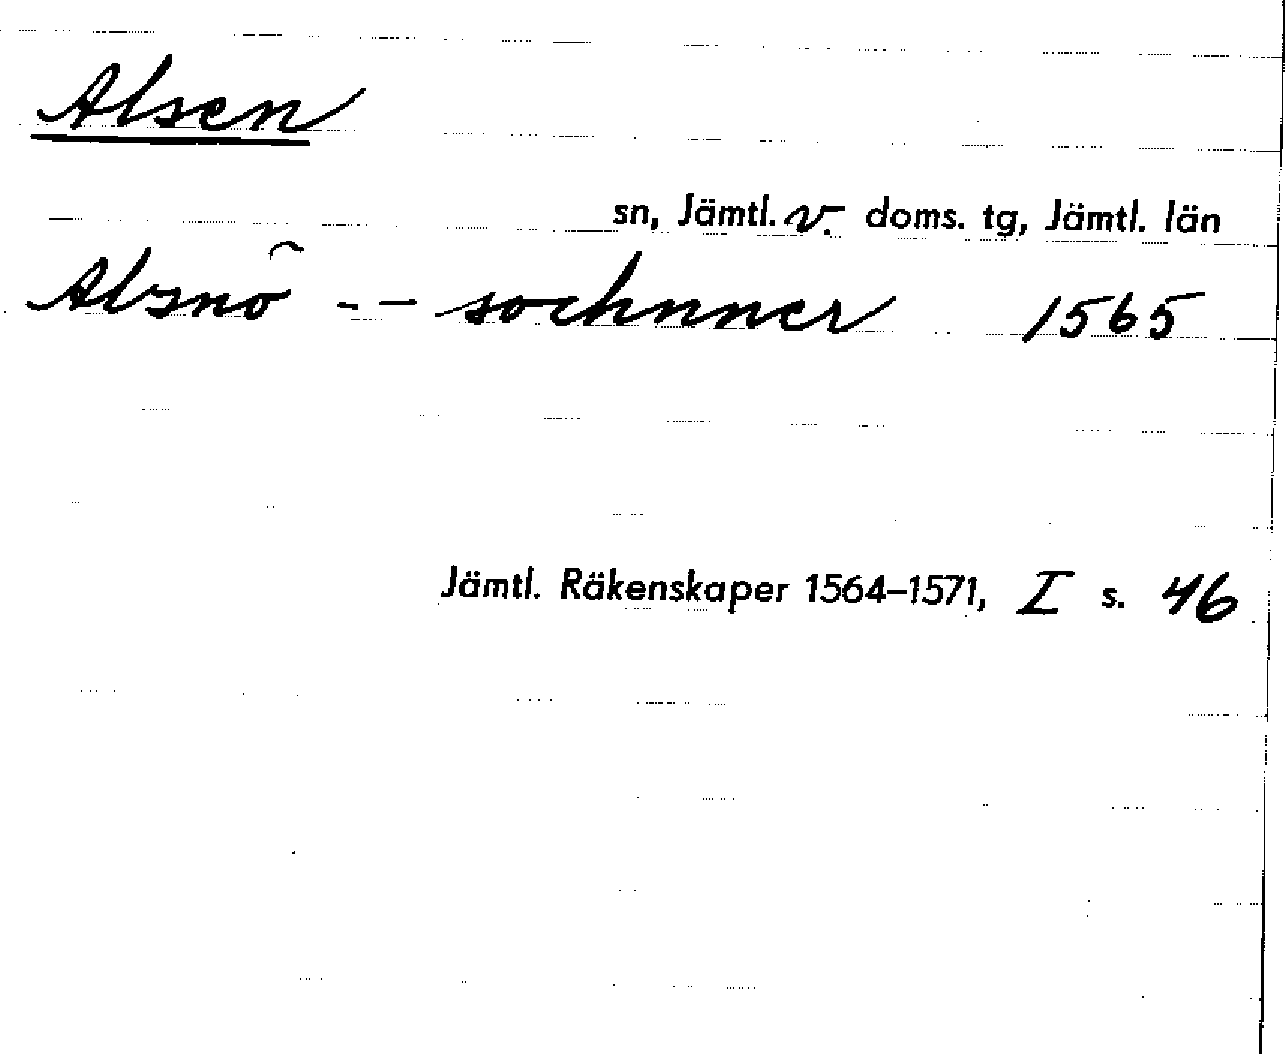 Alsen
sn, Jämtl. v. doms. tg, Jämtl. län
Alsnö -- sochnner 1565
Jämtl. Räkenskaper 1564-1571, I s. 46